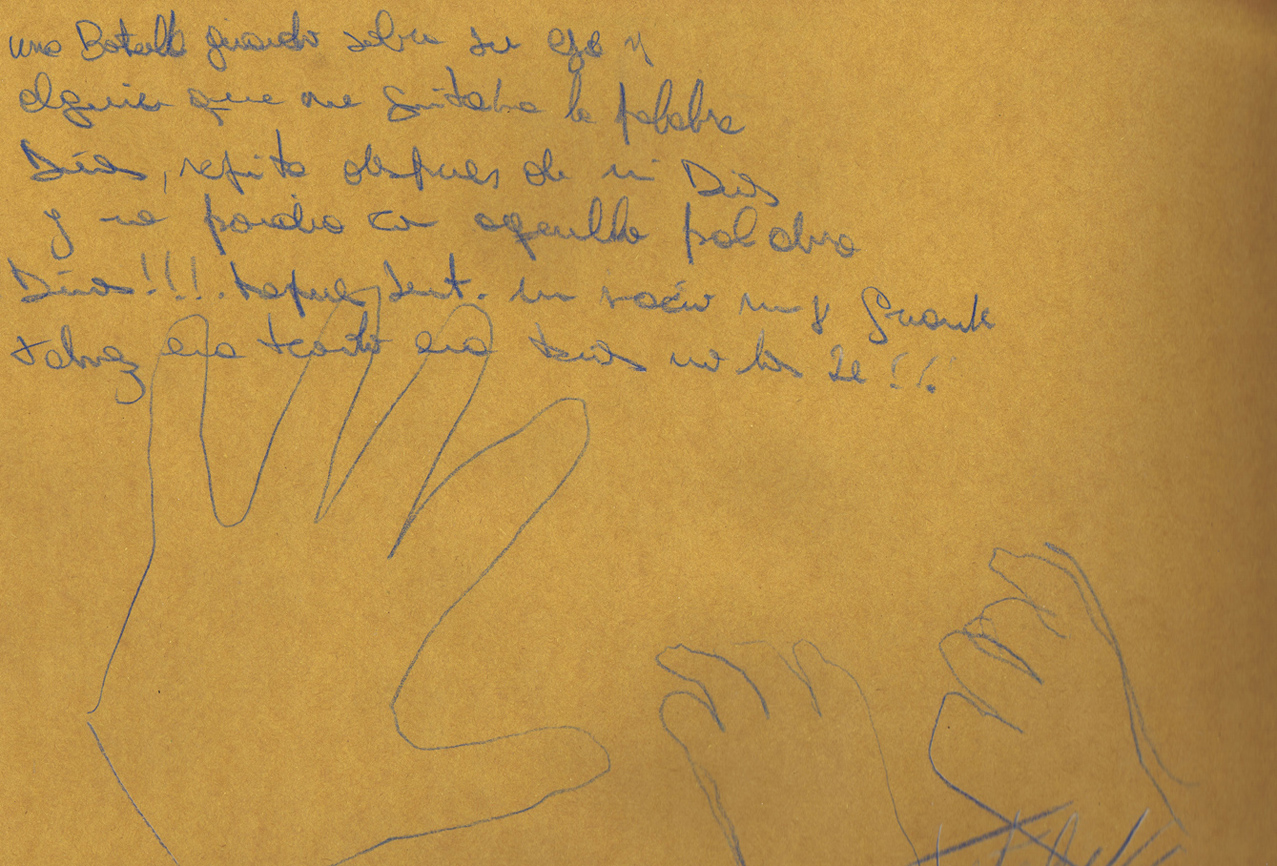 una Botella girando sobre su eje y
alguien que me gritaba la palabra
Dios, repita despues de mi Dios
y me perdia en aquella palabra
Dios!!! Despues sent. un vacio muy Grande
talvez era tanto era Dios no los se!!